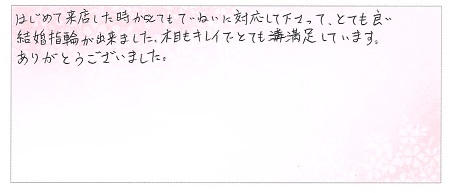 はじめて来店した時からとてもていねいに対応して下さって、とても良い
結婚指輪が出来ました、木目もキレイでとても満足しています。
ありがとうございました。